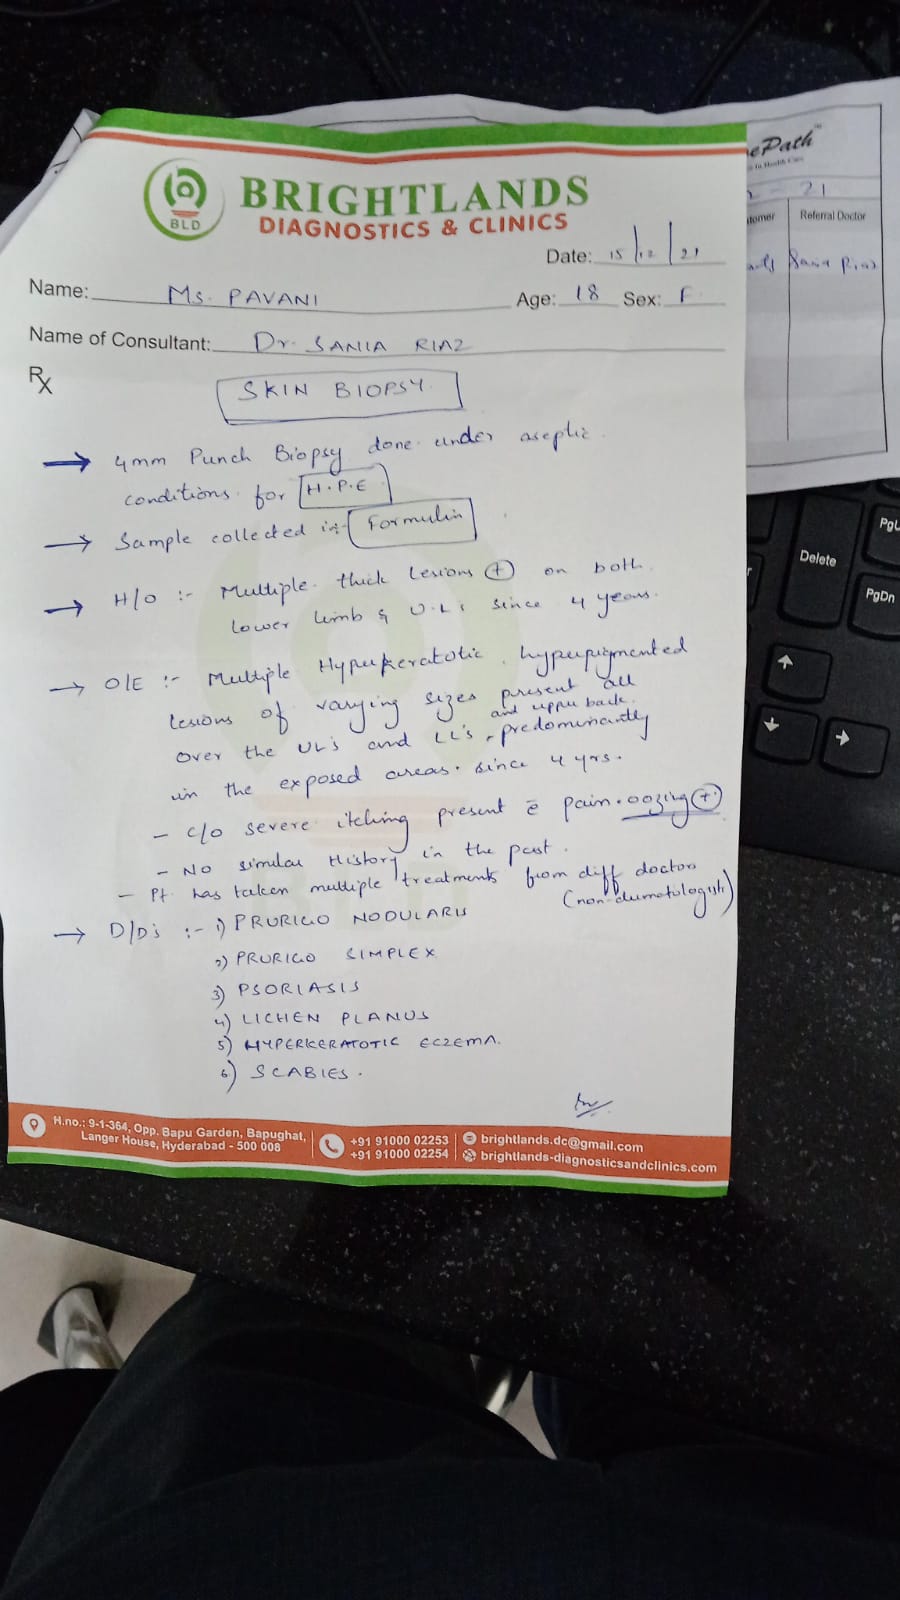 ePath
In Health Care
- 21
tomer Referral Doctor
Sania Riaz
BLD
BRIGHTLANDS
DIAGNOSTICS & CLINICS
Date: 15/12/21
Name: Ms. PAVANI Age: 18 Sex: F.
Name of Consultant: Dr. SANIA RIAZ
Rx
SKIN BIOPSY.
→ 4mm Punch Biopsy done under aseptic.
conditions for H.P.E
→ Sample collected in Formulin
→ H/o :- Multiple thick lesions (+) on both.
Lower limb & U.L's since 4 years.
→ O/E :- Multiple Hyperkeratotic, hyperpigmented
lesions of varying sizes present all
over the UL's and LL's and upper back, predominantly
in the exposed areas. since 4 yrs.
- c/o severe itching present c̄ pain. oozing (+)
- No similar History in the past.
- Pt. has taken multiple treatments from diff doctor
(non-dermatologist)
→ D/D's :- 1) PRURIGO NODULARIS
2) PRURIGO SIMPLEX
3) PSORIASIS
4) LICHEN PLANUS
5) HYPERKERATOTIC ECZEMA.
6) SCABIES.
H.no.: 9-1-364, Opp. Bapu Garden, Bapughat,
Langer House, Hyderabad - 500 008
+91 91000 02253
+91 91000 02254
brightlands.dc@gmail.com
brightlands-diagnosticsandclinics.com
Delete
PgU
PgDn